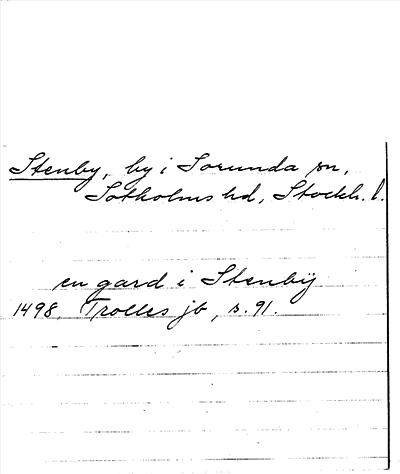 Stenby, by i Sorunda sn,
Sotholms hd, Stockh. l.
en gard i Stenbÿ
1498. Trolles jb, s. 91.